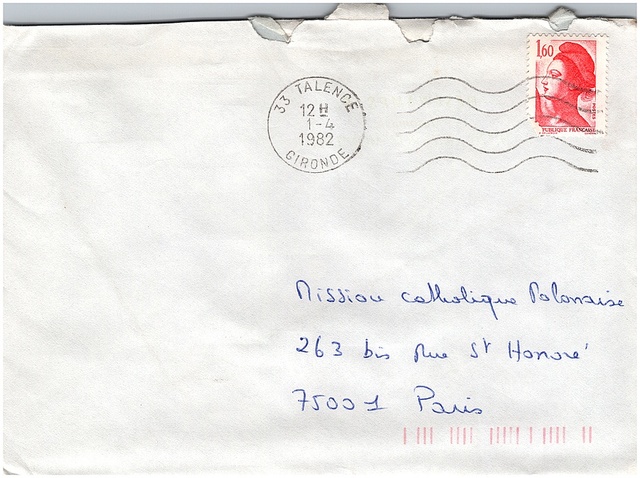 1,60
RÉPUBLIQUE FRANÇAISE
33 TALENCE
12 H
1-4
1982
GIRONDE
Mission catholique Polonaise
263 bis Rue St Honoré
75001 Paris